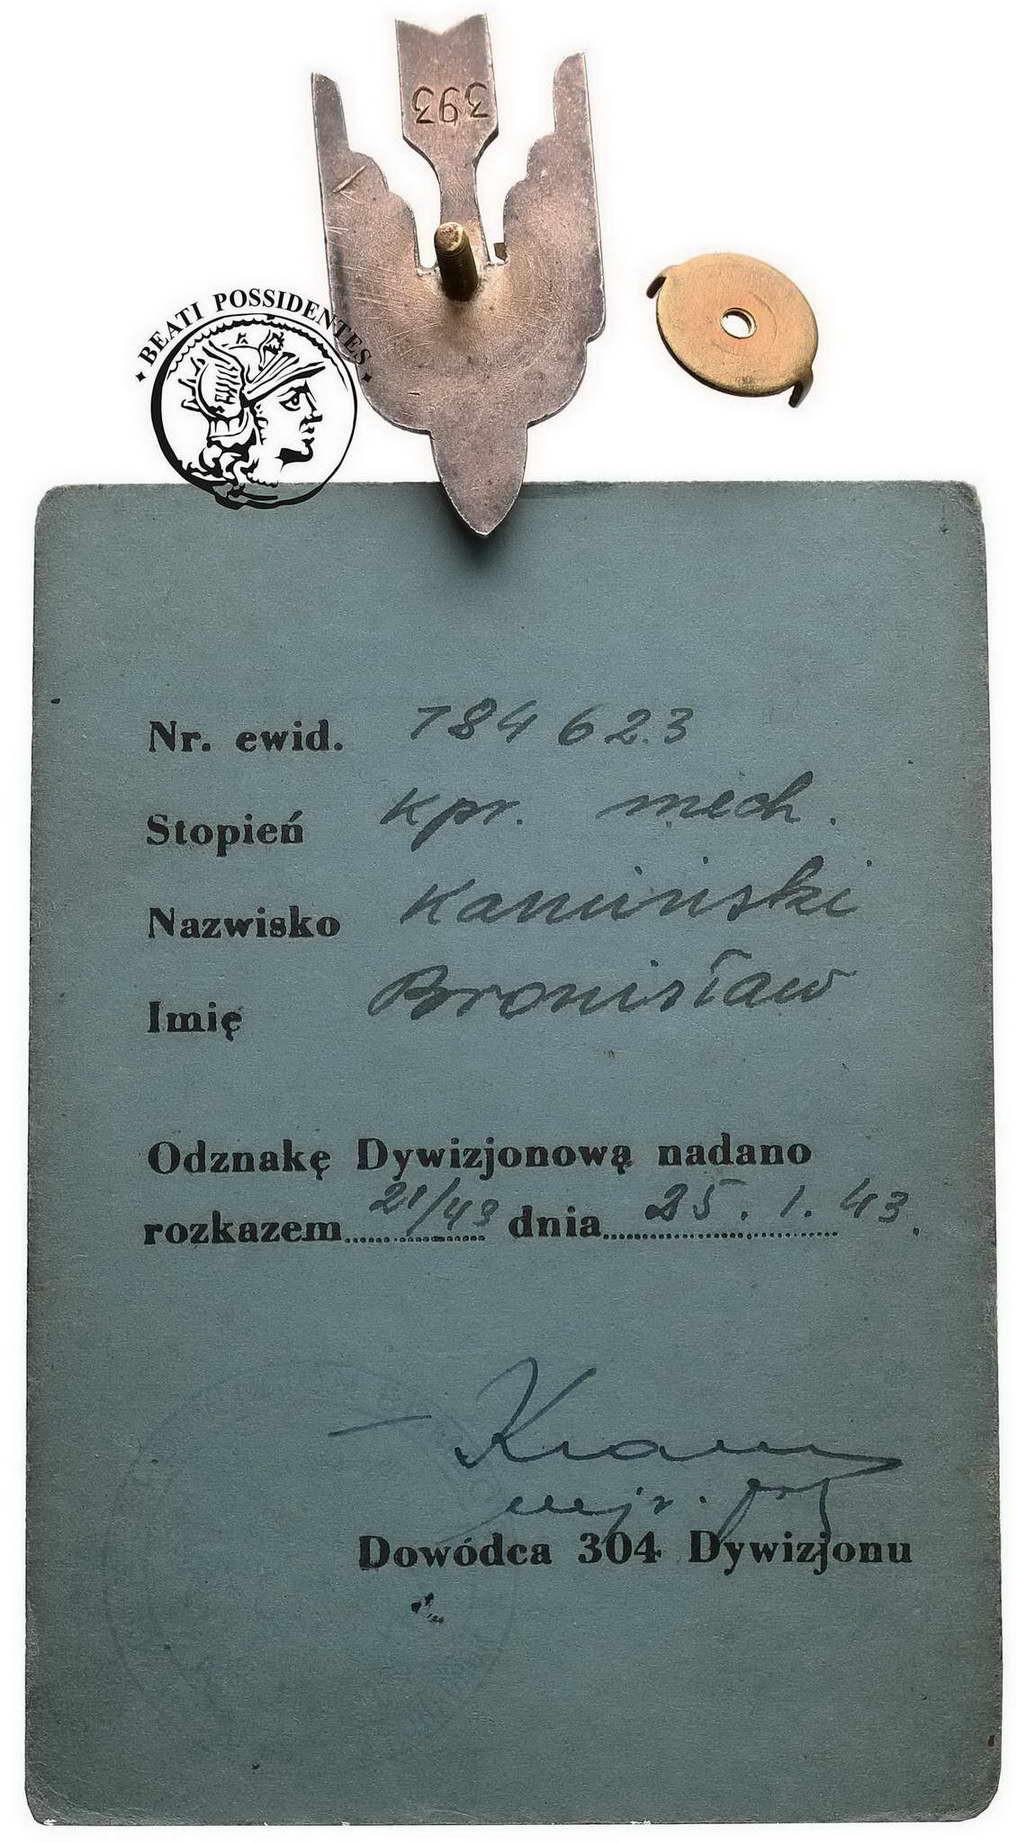 393
BEATI POSSIDENTES
Nr. ewid. 784623
Stopień kpr. mech.
Nazwisko Kamiński
Imię Bronisław
Odznakę Dywizjonową nadano
rozkazem 21/43 dnia 25. 1. 43.
mjr.
Dowódca 304 Dywizjonu